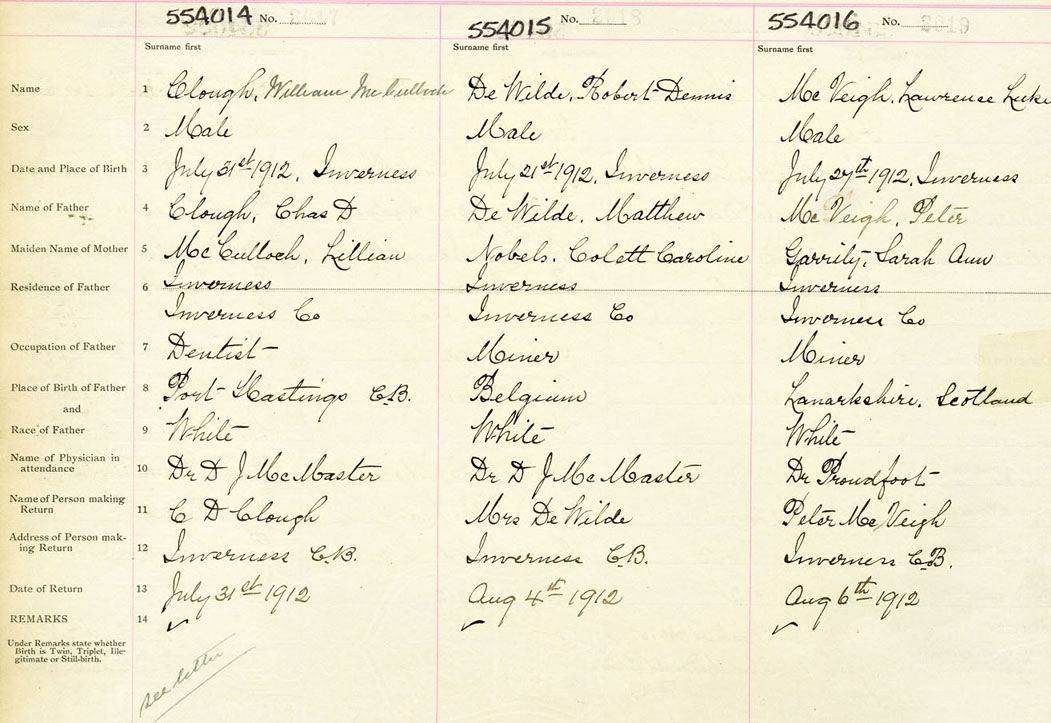 554014 No. 2017 554015 No. 2018 554016 No. 2019
Surname first Surname first Surname first
Name 1 Clough, William McCulloch De Wilde, Robert Dennis Mc Veigh, Lawrence Luke
Sex 2 Male Male Male
Date and Place of Birth 3 July 31st 1912, Inverness July 21st 1912, Inverness July 27th 1912, Inverness
Name of Father 4 Clough, Chas D De Wilde, Matthew Mc Veigh, Peter
Maiden Name of Mother 5 McCulloch, Lillian Nobels, Colett Caroline Garrily, Sarah Ann
Residence of Father 6 Inverness Inverness Inverness
Inverness Co Inverness Co Inverness Co
Occupation of Father 7 Dentist Miner Miner
Place of Birth of Father 8 Port Hastings C.B. Belgium Lanarkshire, Scotland
and
Race of Father 9 White White White
Name of Physician in
attendance 10 Dr D J McMaster Dr D J McMaster Dr Proudfoot
Name of Person making
Return 11 C D Clough Mrs De Wilde Peter McVeigh
Address of Person mak-
ing Return 12 Inverness C.B. Inverness C.B. Inverness C.B.
Date of Return 13 July 31st 1912 Aug 4th 1912 Aug 6th 1912
REMARKS 14 ✓ ✓ ✓
Under Remarks state whether
Birth is Twin, Triplet, Ille-
gitimate or Still-birth.
see letter